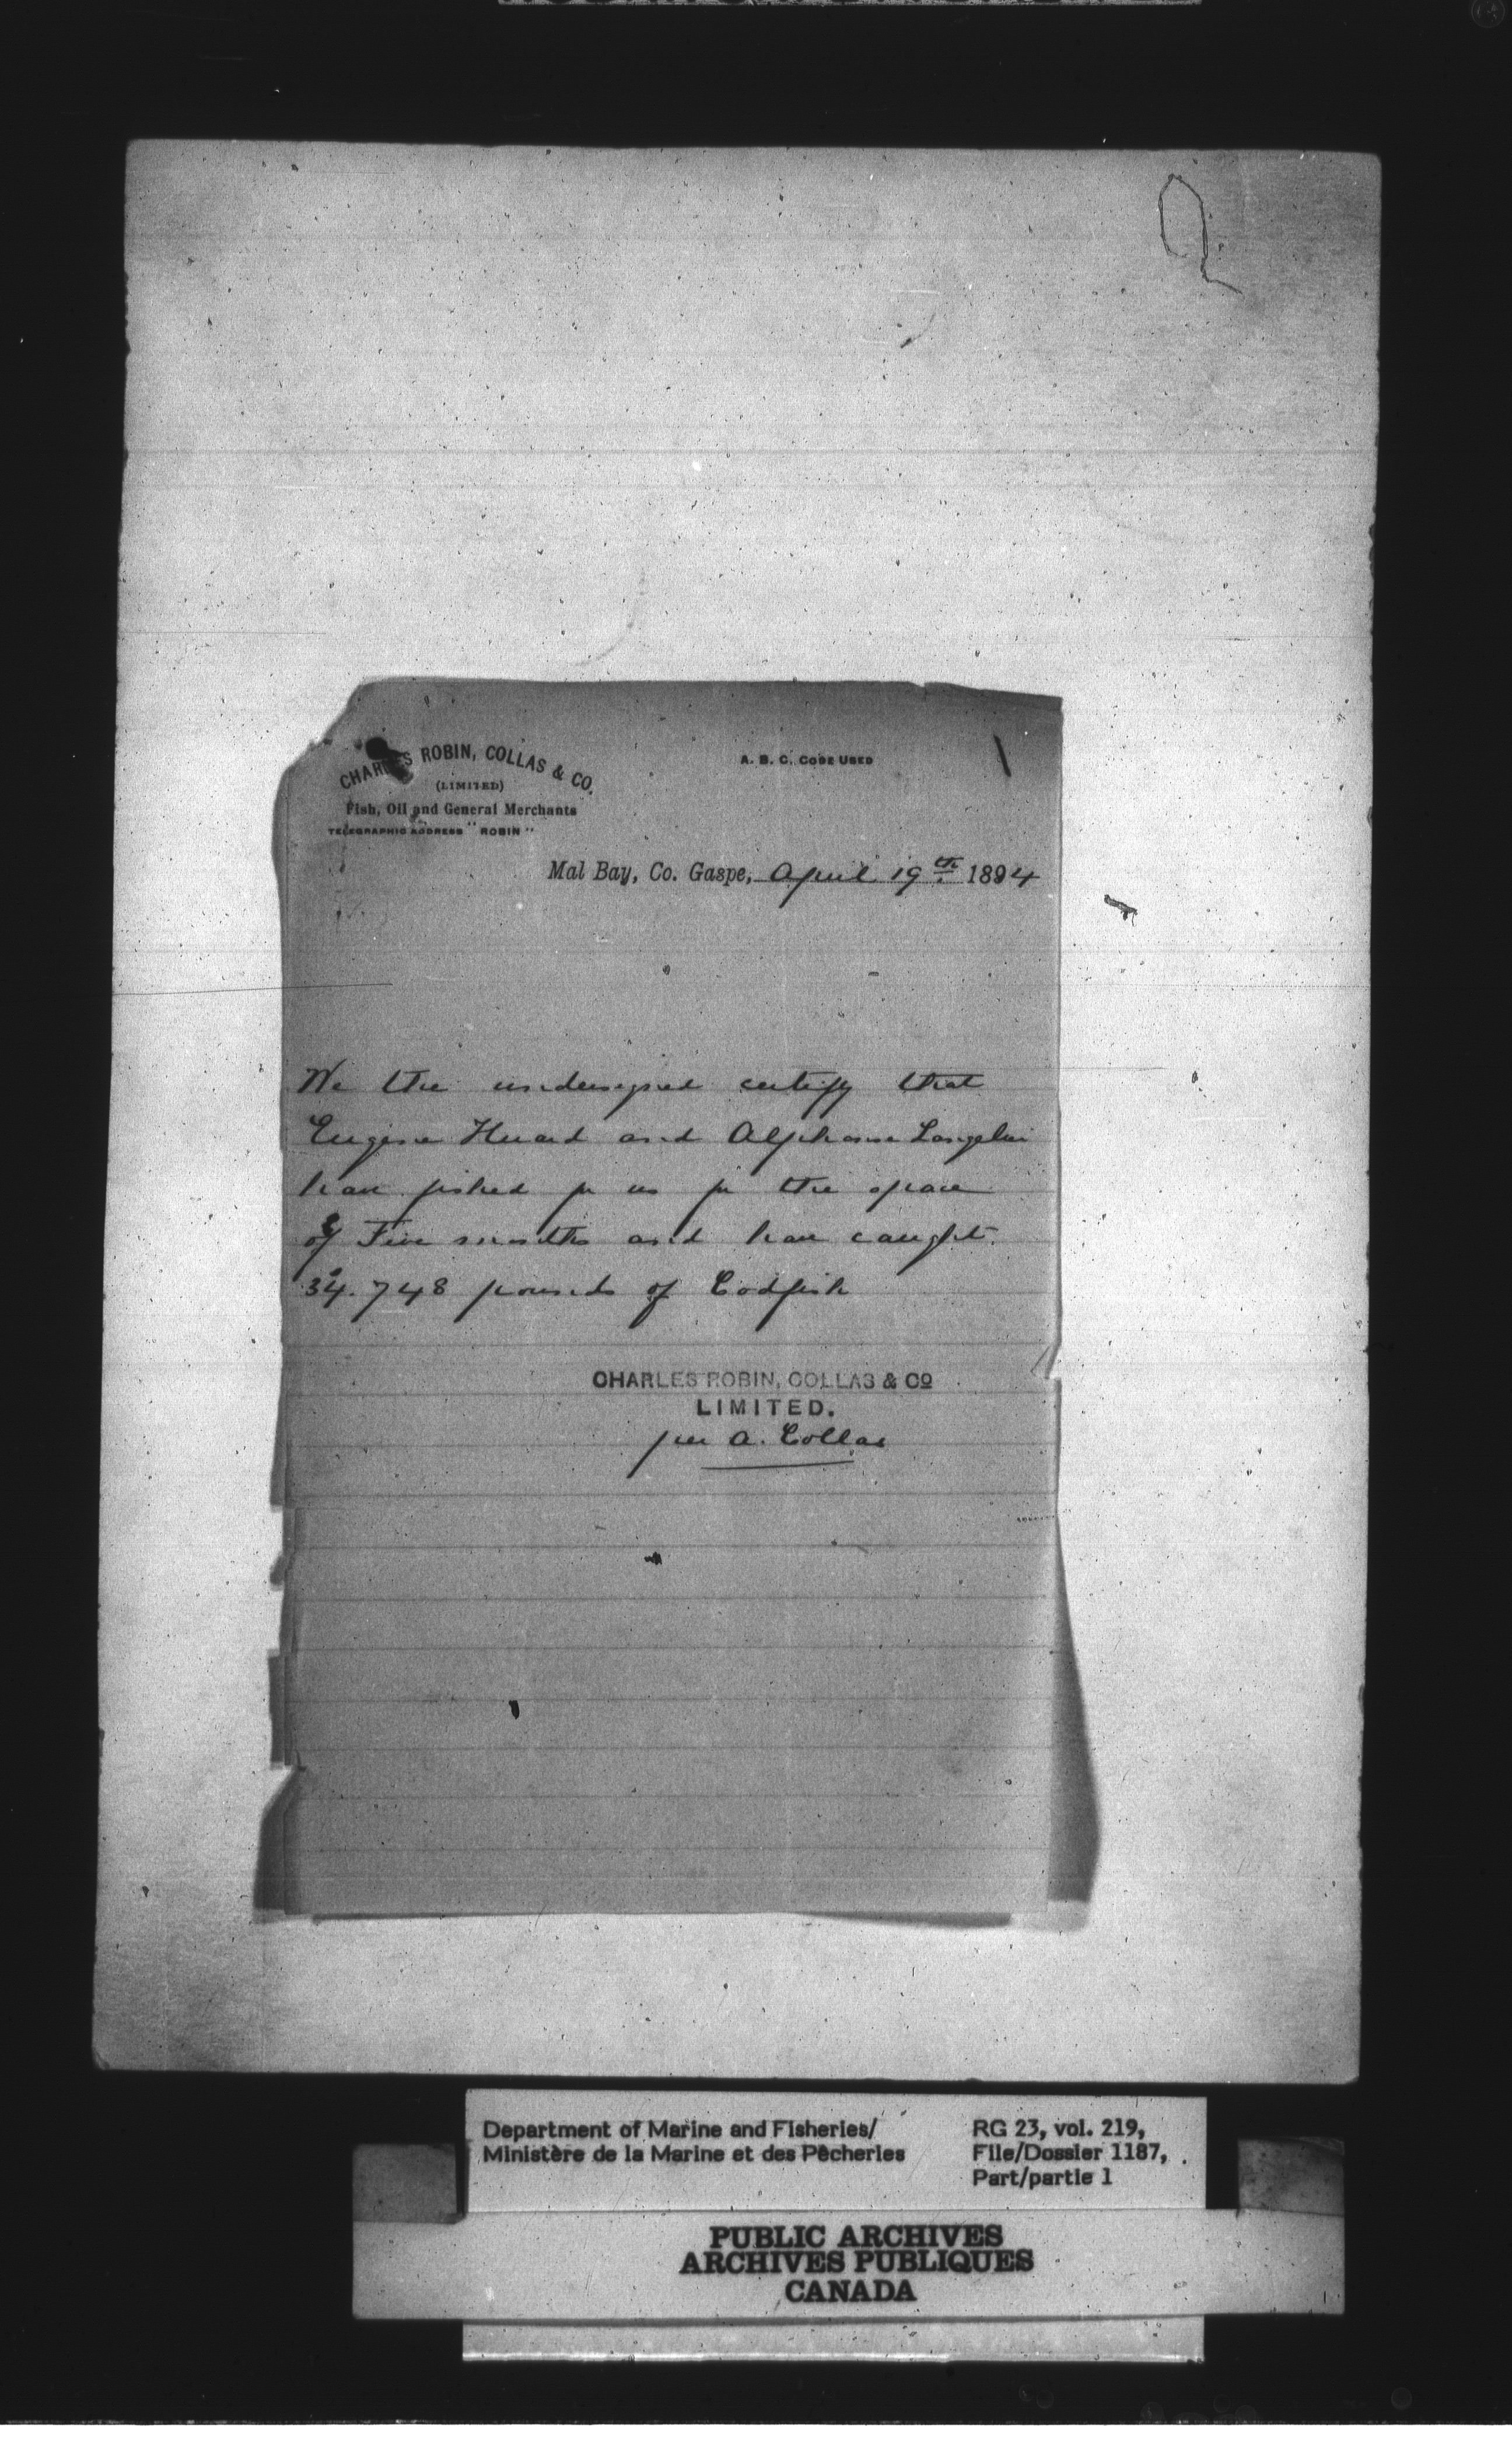 CHARLES ROBIN, COLLAS & CO.
(LIMITED)
Fish, Oil and General Merchants
TELEGRAPHIC ADDRESS "ROBIN"
A. B. C. CODE USED
Mal Bay, Co. Gaspe, April 19th 1894
We the undersigned certify that
Eugene Huard and Alphonse Langelier
have fished for us for the space
of Five months and have caught
34.748 pounds of Codfish
CHARLES ROBIN, COLLAS & CO
LIMITED.
per A. Collas
Department of Marine and Fisheries/
Ministère de la Marine et des Pêcheries
RG 23, vol. 219,
File/Dossier 1187,
Part/partie 1
PUBLIC ARCHIVES
ARCHIVES PUBLIQUES
CANADA